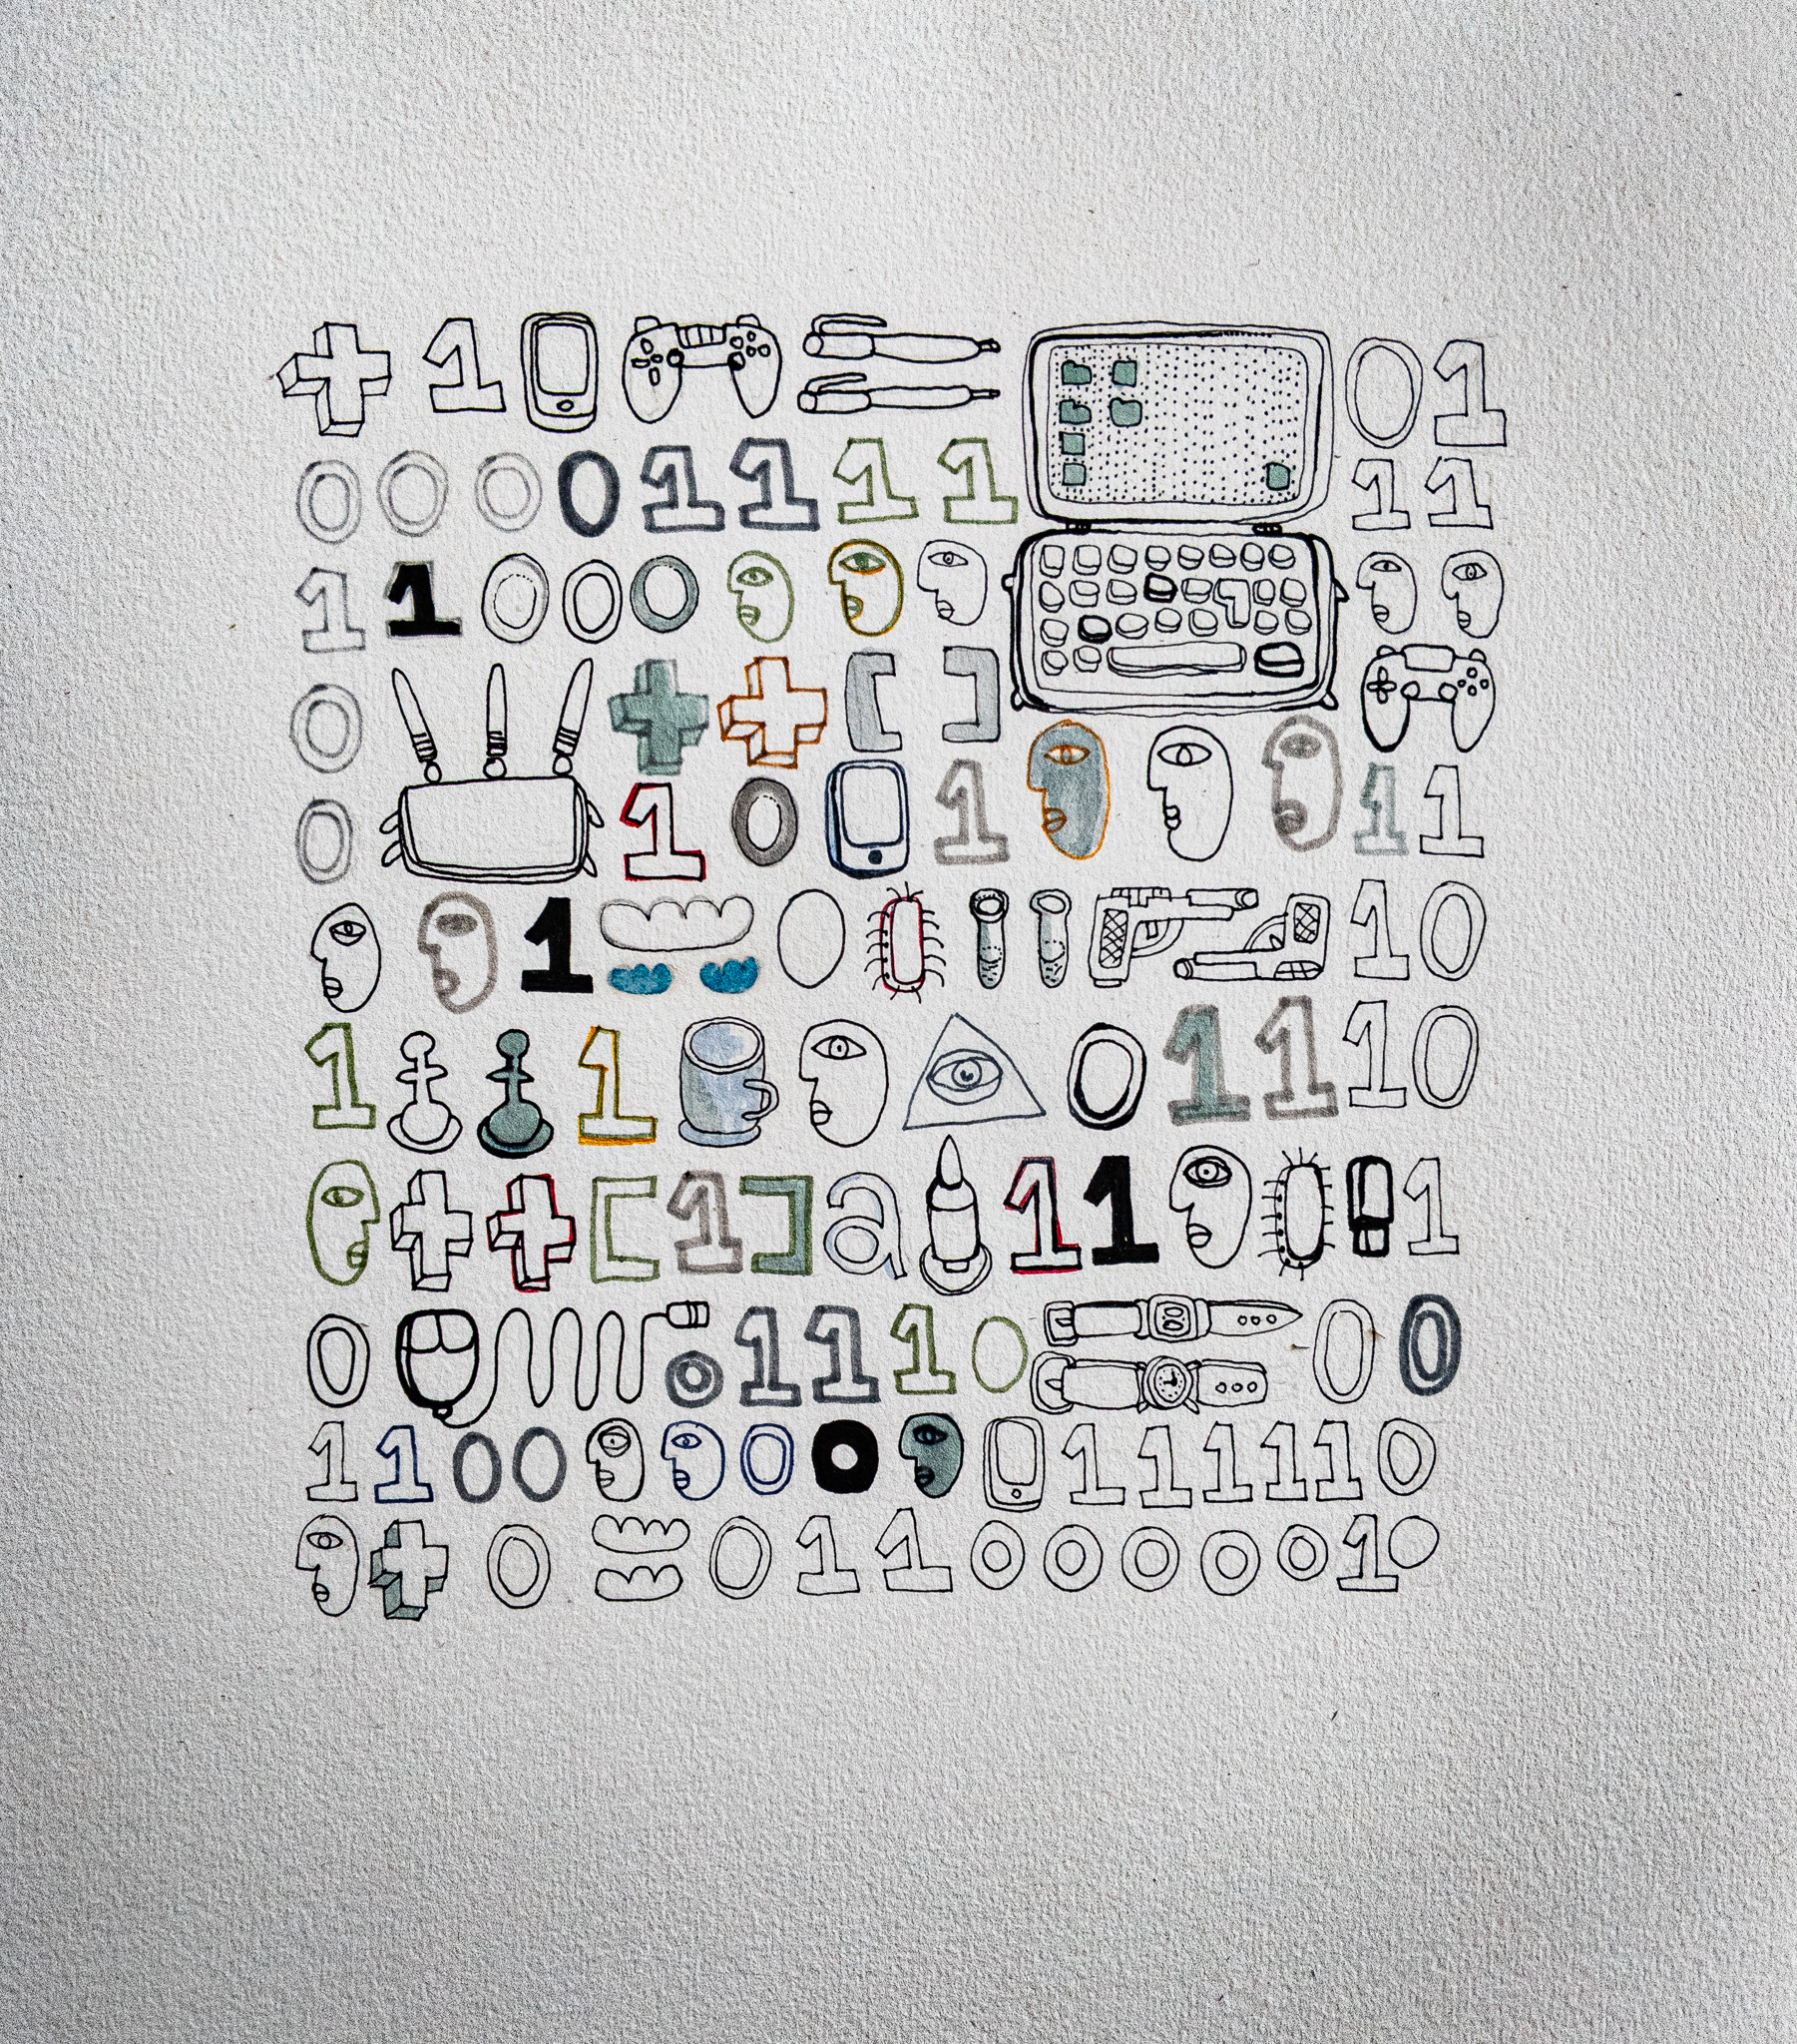 + 1 0 1
0 0 0 0 1 1 1 1 1 1
1 1 0 0 0
0 + + [ ]
0 1 0 1 1 1
1 0 1 0
1 1 0 1 1 1 0
+ + [ 1 ] a 1 1 1
0 0 1 1 1 0 0 0
1 1 0 0 0 0 1 1 1 1 1 0
+ 0 0 1 1 0 0 0 0 0 1 0